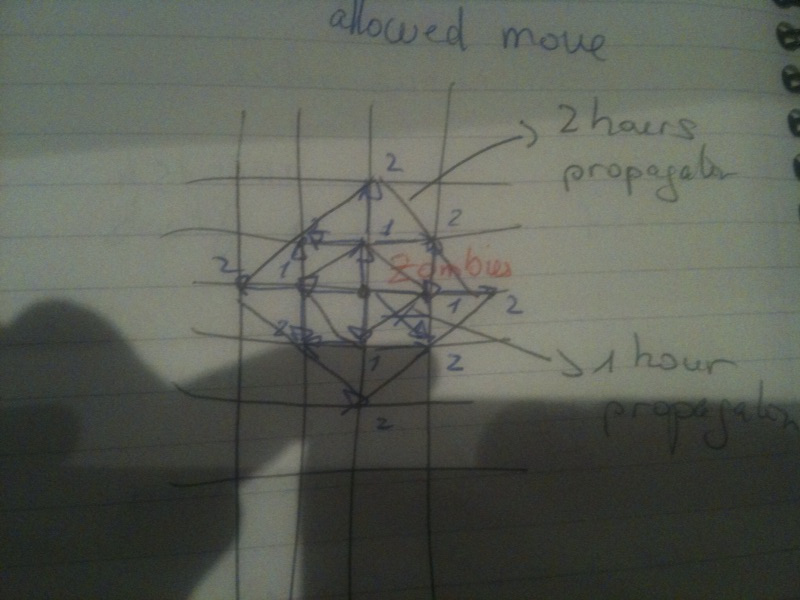 allowed move
2 hours
propagation
2
2
1
2
1
Zombies
1
2
2
1
2
1 hour
propagation
2